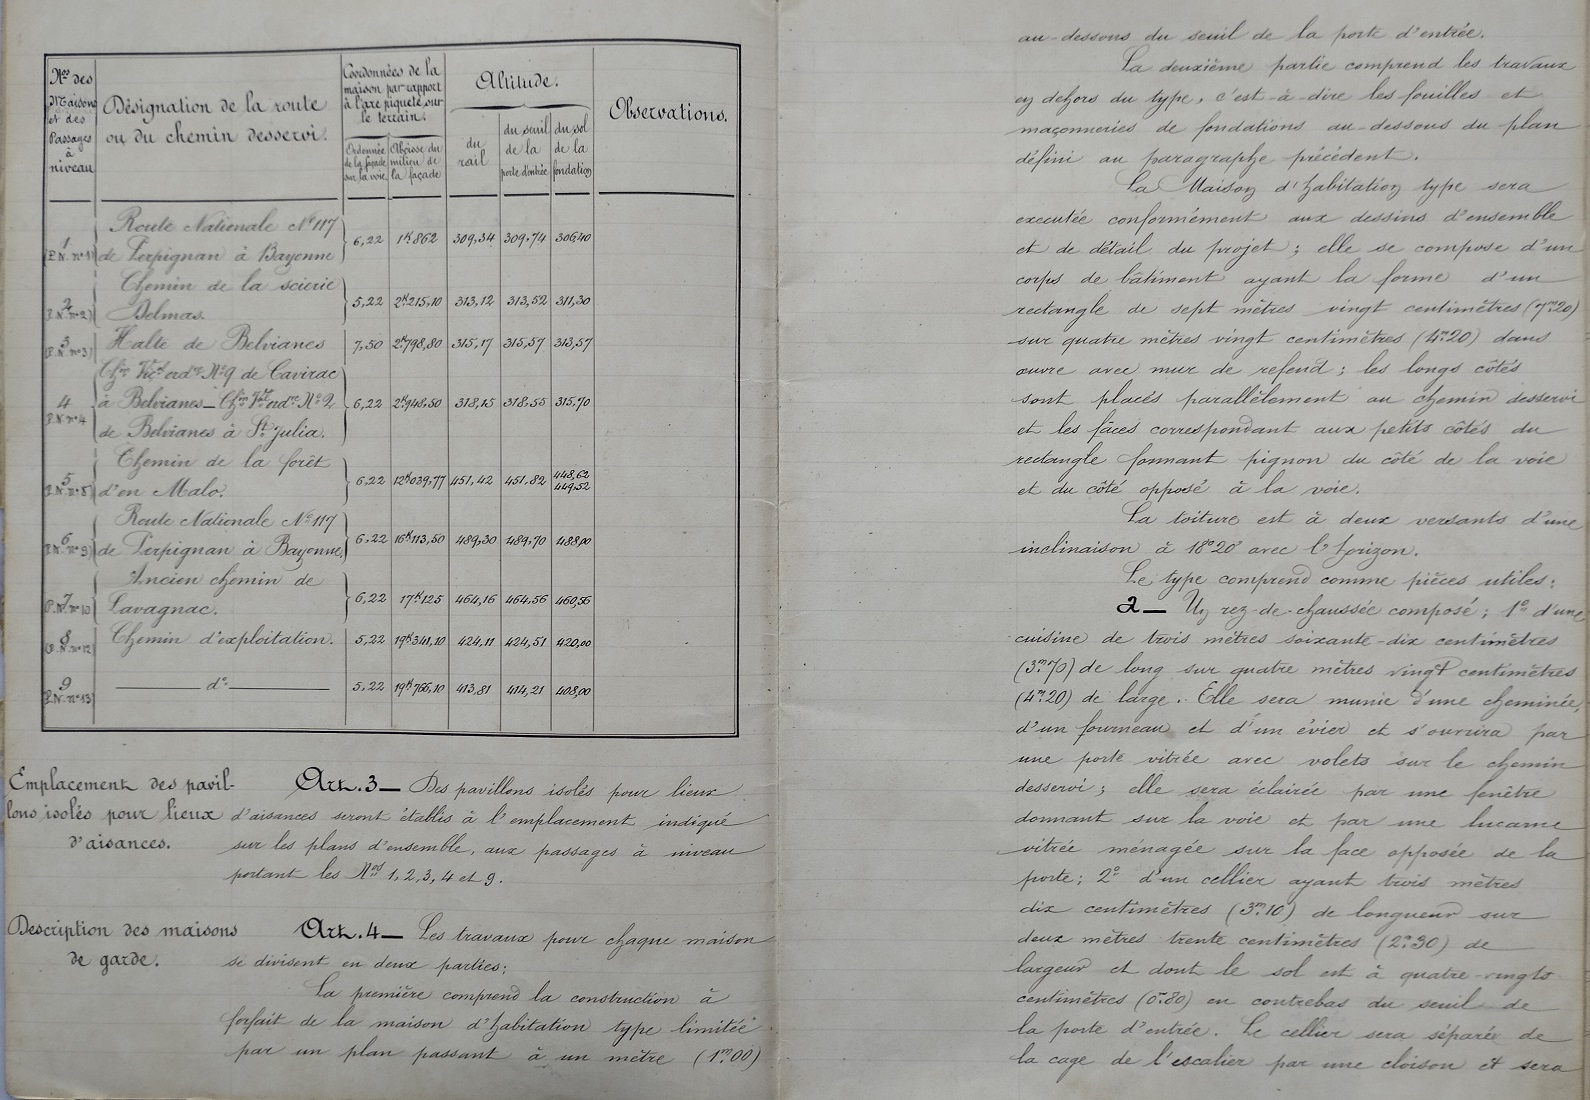 Nos des Maisons et des Passages à niveau
Désignation de la route ou du chemin desservi.
Coordonnées de la maison par rapport à l'axe piqueté sur le terrain.
Ordonnée de la façade sur la voie
Abcisse du milieu de la façade
Altitude.
du rail
du seuil de la porte d'entrée
du sol de la fondation
Observations.
1 (P.N. n°1) Route Nationale N°117 de Perpignan à Bayonne 6,22 1K862 309,34 309,74 306,40
2 (P.N. n°2) Chemin de la scierie Delmas. 5,22 2K215,10 313,12 313,52 311,30
3 (P.N. n°3) Halte de Belvianes 7,50 2K798,80 315,17 315,57 313,57
4 P.N. n°4 Chin Vical ordre N°9 de Cavirac à Belvianes _ Chin Vcal ordre N°2 de Belvianes à St Julia. 6,22 2K948,50 318,15 318,55 315,70
5 P.N. n°5 Chemin de la forêt d'en Malo. 6,22 12K039,77 451,42 451,82 448,62 449,52
6 P.N. n°9 Route Nationale N°117 de Perpignan à Bayonne 6,22 16K113,50 489,30 489,70 488,00
7 P.N. n°10 Ancien chemin de Lavagnac. 6,22 17K125 464,16 464,56 460,56
8 P.N. n°12 Chemin d'exploitation. 5,22 19K341,10 424,11 424,51 420,00
9 P.N. n°13 d° 5.22 19K766,10 413,81 414,21 408,00
Emplacement des pavil-
lons isolés pour lieux
d'aisances.
Art. 3 _ Des pavillons isolés pour lieux
d'aisances seront établis à l'emplacement indiqué
sur les plans d'ensemble, aux passages à niveau
portant les Nos 1, 2, 3, 4 et 9.
Description des maisons
de garde.
Art. 4 _ Les travaux pour chaque maison
se divisent en deux parties;
La première comprend la construction à
forfait de la maison d'habitation type limitée
par un plan passant à un mètre (1m.00)
au-dessous du seuil de la porte d'entrée.
La deuxième partie comprend les travaux
en dehors du type, c'est-à-dire les fouilles et
maçonneries de fondations au-dessous du plan
défini au paragraphe précédent.
La Maison d'habitation type sera
executée conformément aux dessins d'ensemble
et de détail du projet; elle se compose d'un
corps de bâtiment ayant la forme d'un
rectangle de sept mètres vingt centimètres (7m.20)
sur quatre mètres vingt centimètres (4m.20) dans
œuvre avec mur de refend; les longs côtés
sont placés parallèlement au chemin desservi
et les faces correspondant aux petits côtés du
rectangle formant pignon du côté de la voie
et du côté opposé à la voie.
La toiture est à deux versants d'une
inclinaison à 18°20' avec l'horizon.
Le type comprend comme pièces utiles:
a _ Un rez-de-chaussée composé; 1° d'une
cuisine de trois mètres soixante-dix centimètres
(3m.70) de long sur quatre mètres vingt centimètres
(4m.20) de large. Elle sera munie d'une cheminée,
d'un fourneau et d'un évier et s'ouvrira par
une porte vitrée avec volets sur le chemin
desservi; elle sera éclairée par une fenêtre
donnant sur la voie et par une lucarne
vitrée ménagée sur la face opposée de la
porte; 2° d'un cellier ayant trois mètres
dix centimètres (3m.10) de longueur sur
deux mètres trente centimètres (2m.30) de
largeur et dont le sol est à quatre-vingts
centimètres (0m.80) en contrebas du seuil de
la porte d'entrée. Le cellier sera séparée de
la cage de l'escalier par une cloison et sera